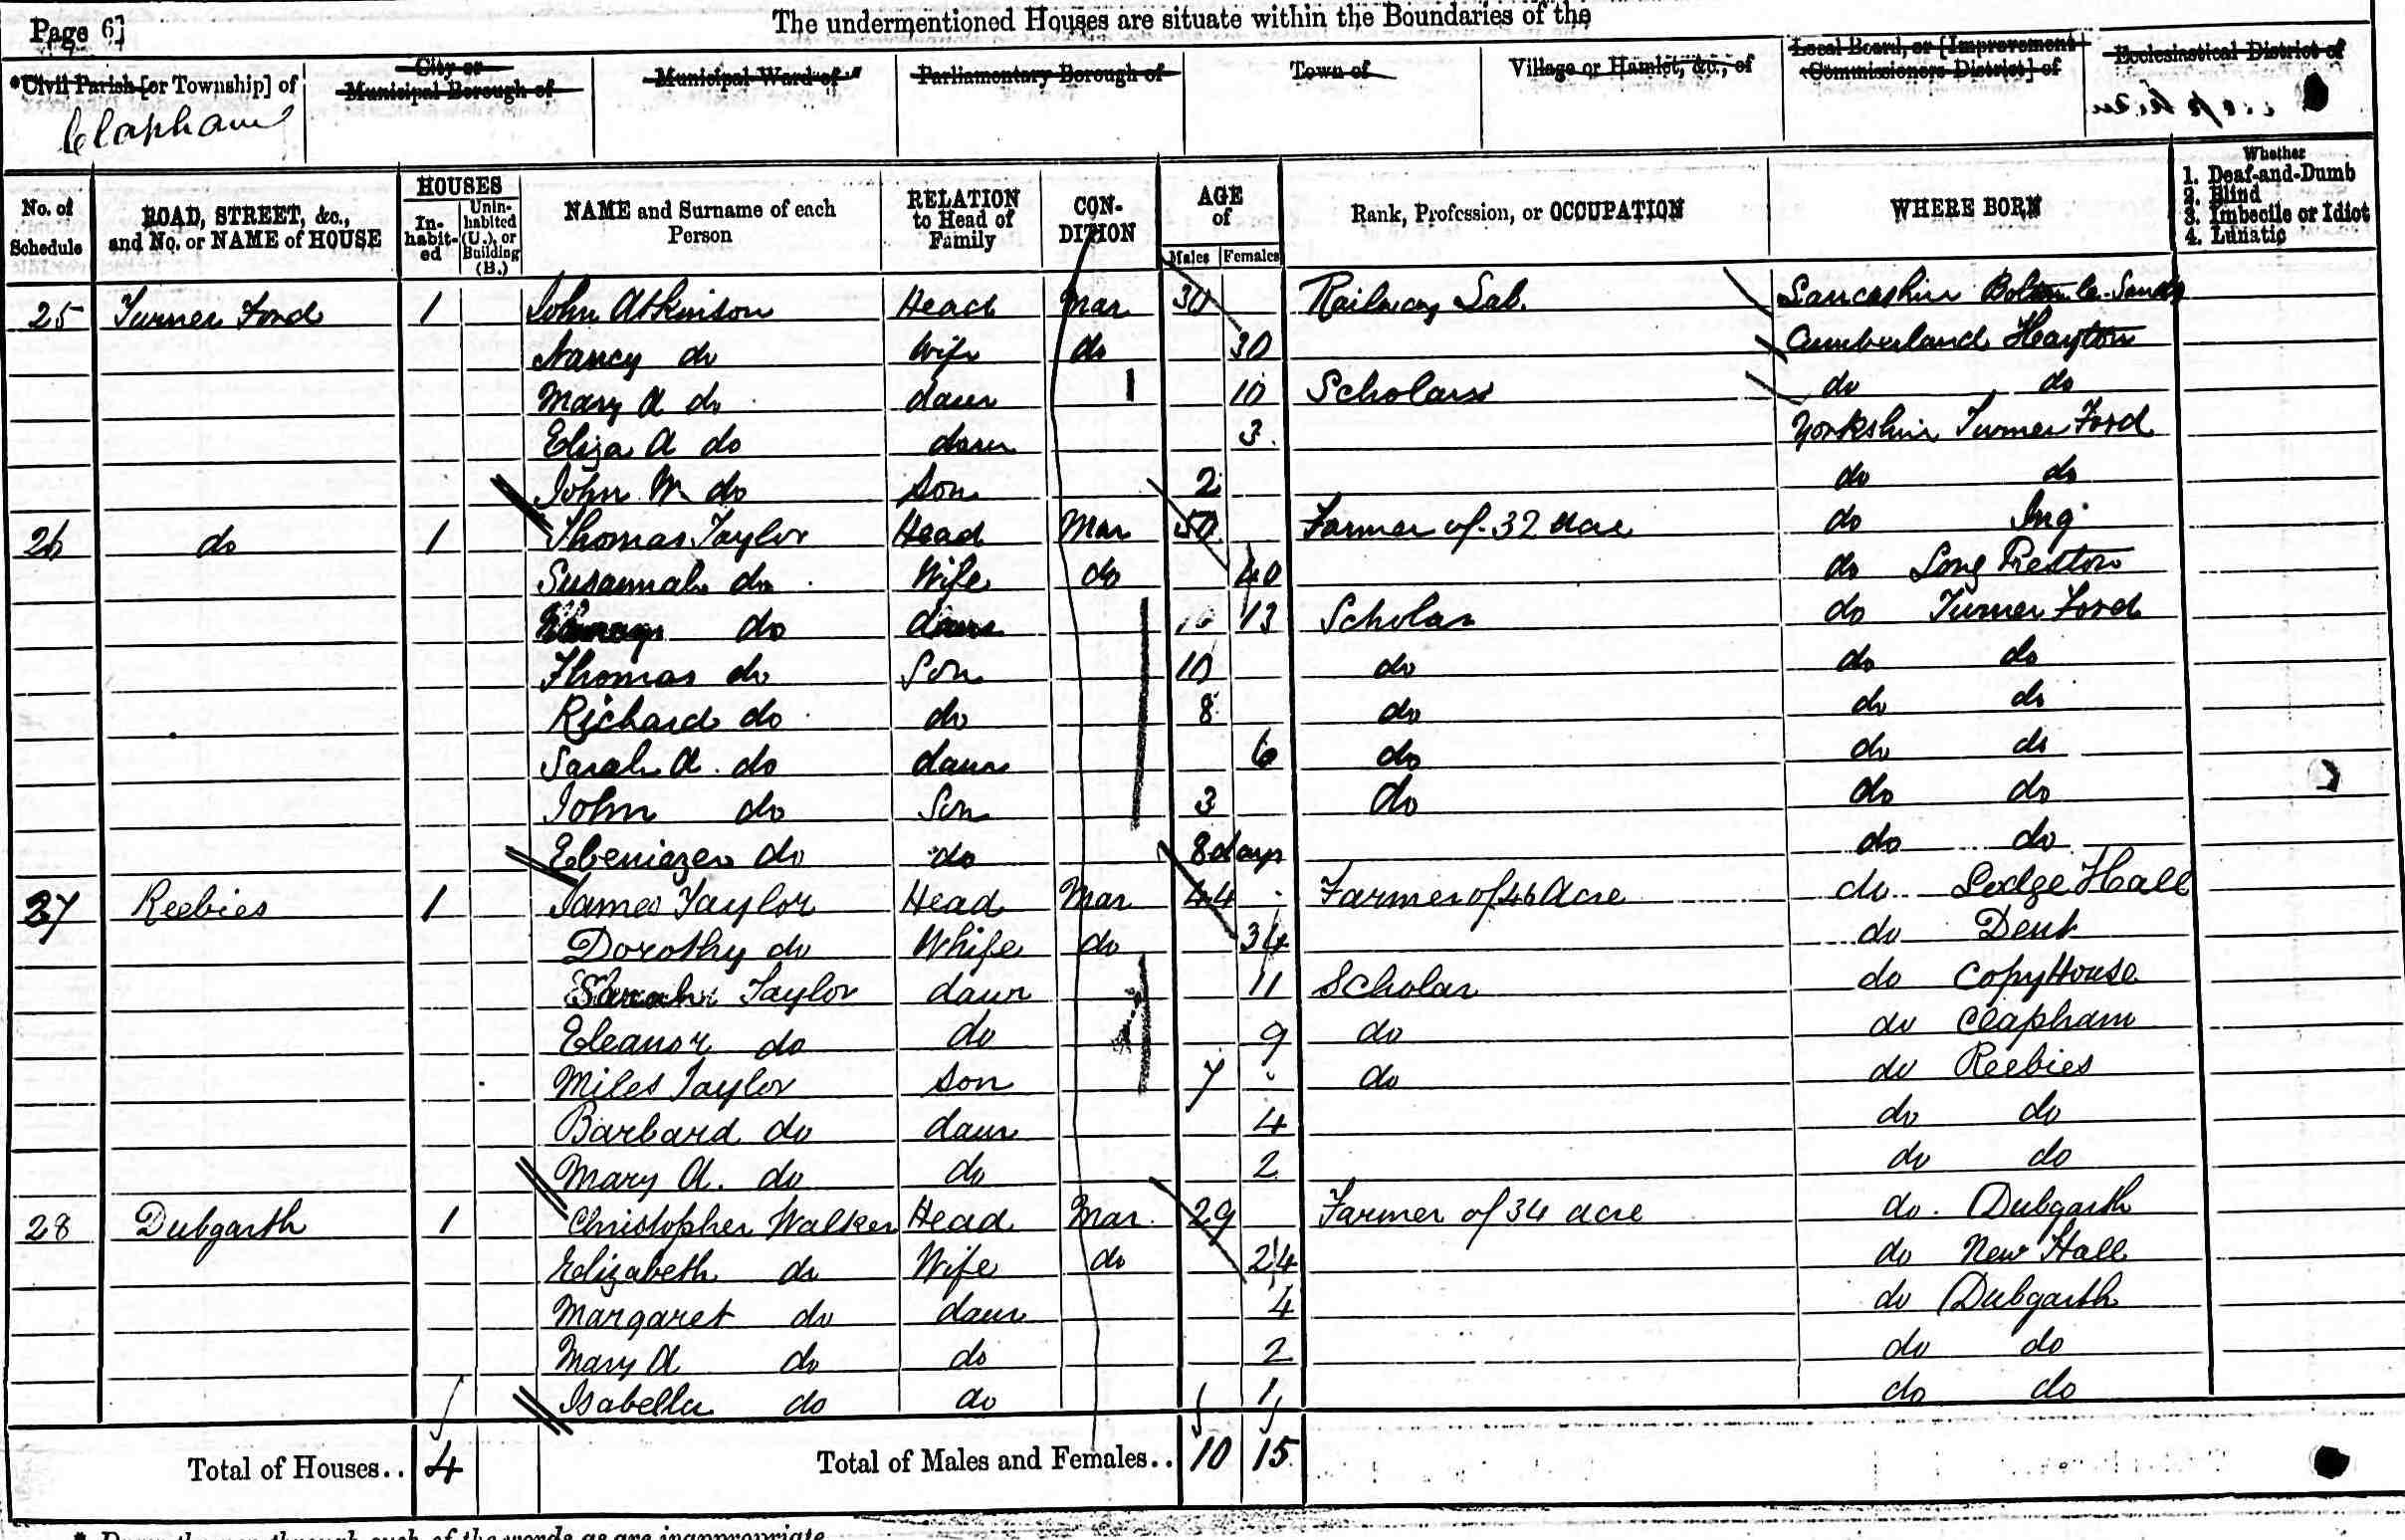 Page 6]
The undermentioned Houses are situate within the Boundaries of the
*Civil Parish [or Township] of
City or Municipal Borough of
Municipal Ward of
Parliamentary Borough of
Town of
Village or Hamlet, &c., of
Local Board, or [Improvement Commissioners District] of
Ecclesiastical District of
Clapham
No. of Schedule
ROAD, STREET, &c., and No. or NAME of HOUSE
HOUSES
In-habit-ed
Unin-habited (U.), or Building (B.)
NAME and Surname of each Person
RELATION to Head of Family
CON-DITION
AGE of
Males Females
Rank, Profession, or OCCUPATION
WHERE BORN
Whether
1. Deaf-and-Dumb
2. Blind
3. Imbecile or Idiot
4. Lunatic
25 Turner Ford 1 John Atkinson Head Mar 30 Railway Lab. Lancashire Bolton le Sands
Nancy do Wife do 30 Cumberland Hayton
Mary A do daur 10 Scholar do do
Eliza A do daur 3 Yorkshire Turner Ford
John W do Son 2 do do
26 do 1 Thomas Taylor Head Mar 50 Farmer of 32 acre do Ing
Susannah do Wife do 40 do Long Preston
do daur 13 Scholar do Turner Ford
Thomas do Son 10 do do do
Richard do do 8 do do do
Sarah A. do daur 6 do do do
John do Son 3 do do do
Ebeniezer do do 8 days do do
27 Reebies 1 James Taylor Head Mar 44 Farmer of 46 Acre do Lodge Hall
Dorothy do Whife do 34 do Dent
Sarah Taylor daur 11 Scholar do Copy House
Eleanor do do 9 do do Clapham
Miles Taylor Son 7 do do Reebies
Barbard do daur 4 do do
Mary A. do do 2 do do
28 Dubgarth 1 Christopher Walker Head Mar 29 Farmer of 34 acre do. Dubgarth
Elizabeth do Wife do 24 do New Hall
Margaret do daur 4 do Dubgarth
Mary A do do 2 do do
Isabella do do 1 do do
Total of Houses.. 4 Total of Males and Females.. 10 15